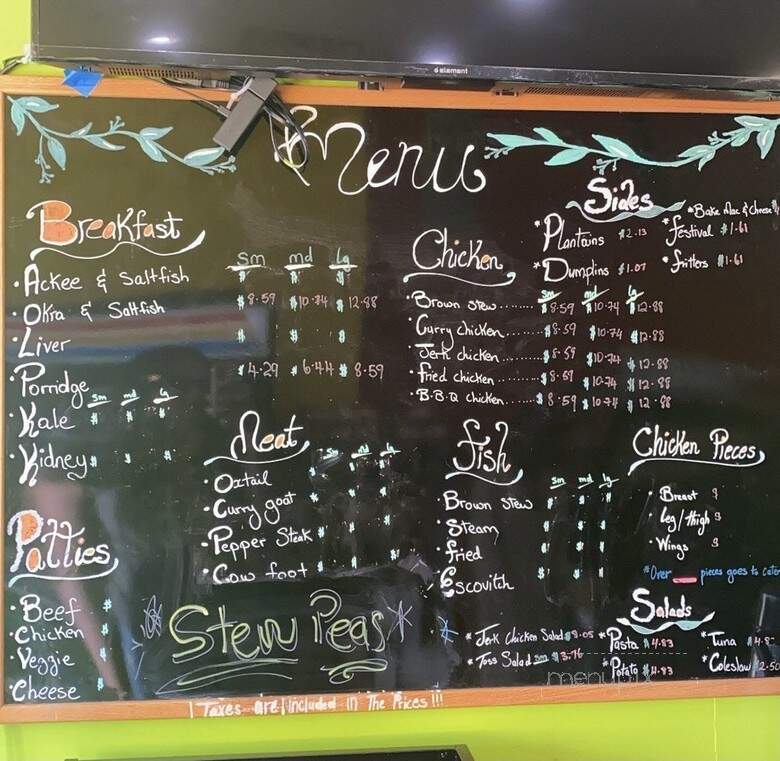 element
Menu
Breakfast
sm md lg
• Ackee & Saltfish $ $ $
• Okra & Saltfish $8.59 $10.74 $12.88
• Liver $ $ $
• Porridge $4.29 $6.44 $8.59
sm md lg
• Kale $ $ $
• Kidney $ $ $
Patties
• Beef $
• Chicken $
• Veggie $
• Cheese $
Meat
sm md lg
• Oxtail $ $ $
• Curry goat $ $ $
• Pepper Steak $ $ $
• Cow foot $ $ $
* Stew Peas *
Chicken
sm md lg
• Brown stew........ $8.59 $10.74 $12.88
• Curry chicken.... $8.59 $10.74 $12.88
• Jerk chicken...... $8.59 $10.74 $12.88
• Fried chicken...... $8.59 $10.74 $12.88
• B.B.Q chicken.... $8.59 $10.74 $12.88
Sides
* Bake Mac & Cheese $
* Plantains $2.13 * Festival $1.61
* Dumplins $1.07 * Fritters $1.61
Fish
sm md lg
• Brown Stew $ $ $
• Steam $ $ $
• Fried $ $ $
• Escovitch $ $ $
Chicken Pieces
• Breast $
• Leg/thigh $
• Wings $
* Over pieces goes to
Salads
* Jerk Chicken Salad $ * Pasta $4.83 * Tuna $4.8
* Toss Salad sm $3.76 * Potato $4.83 * Coleslaw $2.50
Taxes are Included in The Prices!!!